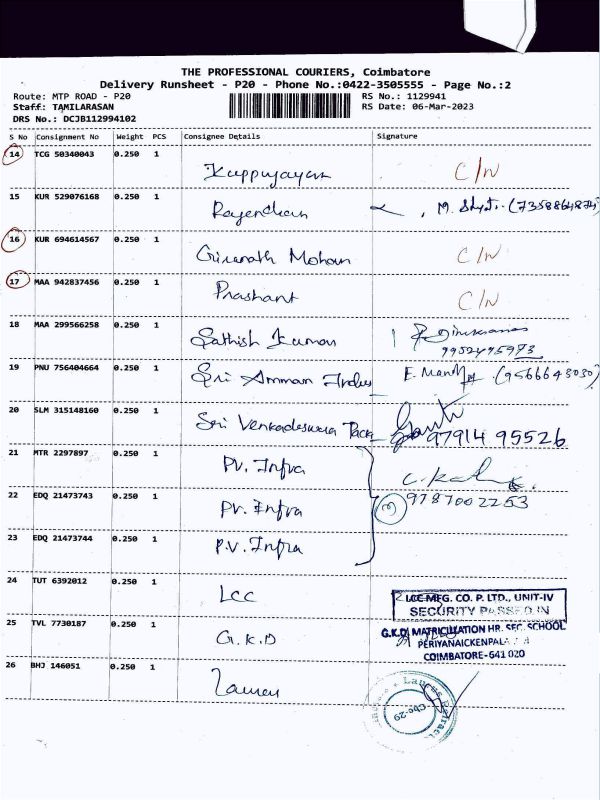 THE PROFESSIONAL COURIERS, Coimbatore
Delivery Runsheet - P20 - Phone No.:0422-3505555 - Page No.:2
Route: MTP ROAD - P20 RS No.: 1129941
Staff: TAMILARASAN RS Date: 06-Mar-2023
DRS No.: DCJB112994102
S No Consignment No Weight PCS Consignee Details Signature
14 TCG 50340043 0.250 1 Kuppujayan C/N
15 KUR 529076168 0.250 1 Rajendran M.
16 KUR 694614567 0.250 1 Girinath Mohan C/N
17 MAA 942837456 0.250 1 Prashant C/N
18 MAA 299566258 0.250 1 Sathish Kumar
9952495973
19 PNU 756404664 0.250 1 Sri Amman Indus E. (9566643030)
20 SLM 315148160 0.250 1 Sri Venkadeswara Pack
97914 95526
21 MTR 2297897 0.250 1 PV. Infra
22 EDQ 21473743 0.250 1 PV. Infra 9787002253
23 EDQ 21473744 0.250 1 P.V. Infra
24 TUT 6392012 0.250 1 LCC
LCC MFG. CO. P. LTD., UNIT-IV
SECURITY PASSED IN
25 TVL 7730187 0.250 1 G.K.D
G.K.D. MATRICULATION HR. SEC. SCHOOL
PERIYANAICKENPAL
COIMBATORE-641 020
26 BHJ 146051 0.250 1
Cbe-29